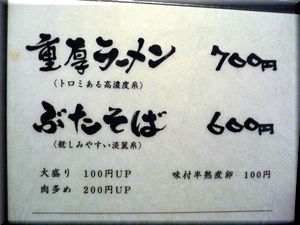 重厚ラーメン 700円
(トロミある高濃度系)
ぶたそば 600円
(親しみやすい淡麗系)
大盛り 100円UP 味付半熟煮卵 100円
肉多め 200円UP